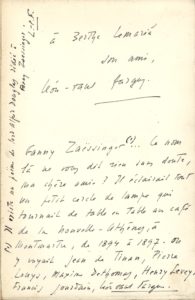 à Berthe Lemarié
son ami,
Léon-Paul Fargue.
Fanny Zaessinger (1)... le nom
ne vous dit rien sans doute,
ma chère amie ? Il éclairait tout
un petit cercle de lampe qui
tournait de table en table au café
de la Nouvelle-Athènes, à
Montmartre, de 1894 à 1897. On
y voyait Jean de Tinan, Pierre
Louÿs, Maxime Dethomas, Henry Levey,
Francis Jourdain, Léon-Paul Fargue.
(1) Il existe un poème de Lord Alfred Douglas dédié à
Fanny Zaessinger. L.-P. F.